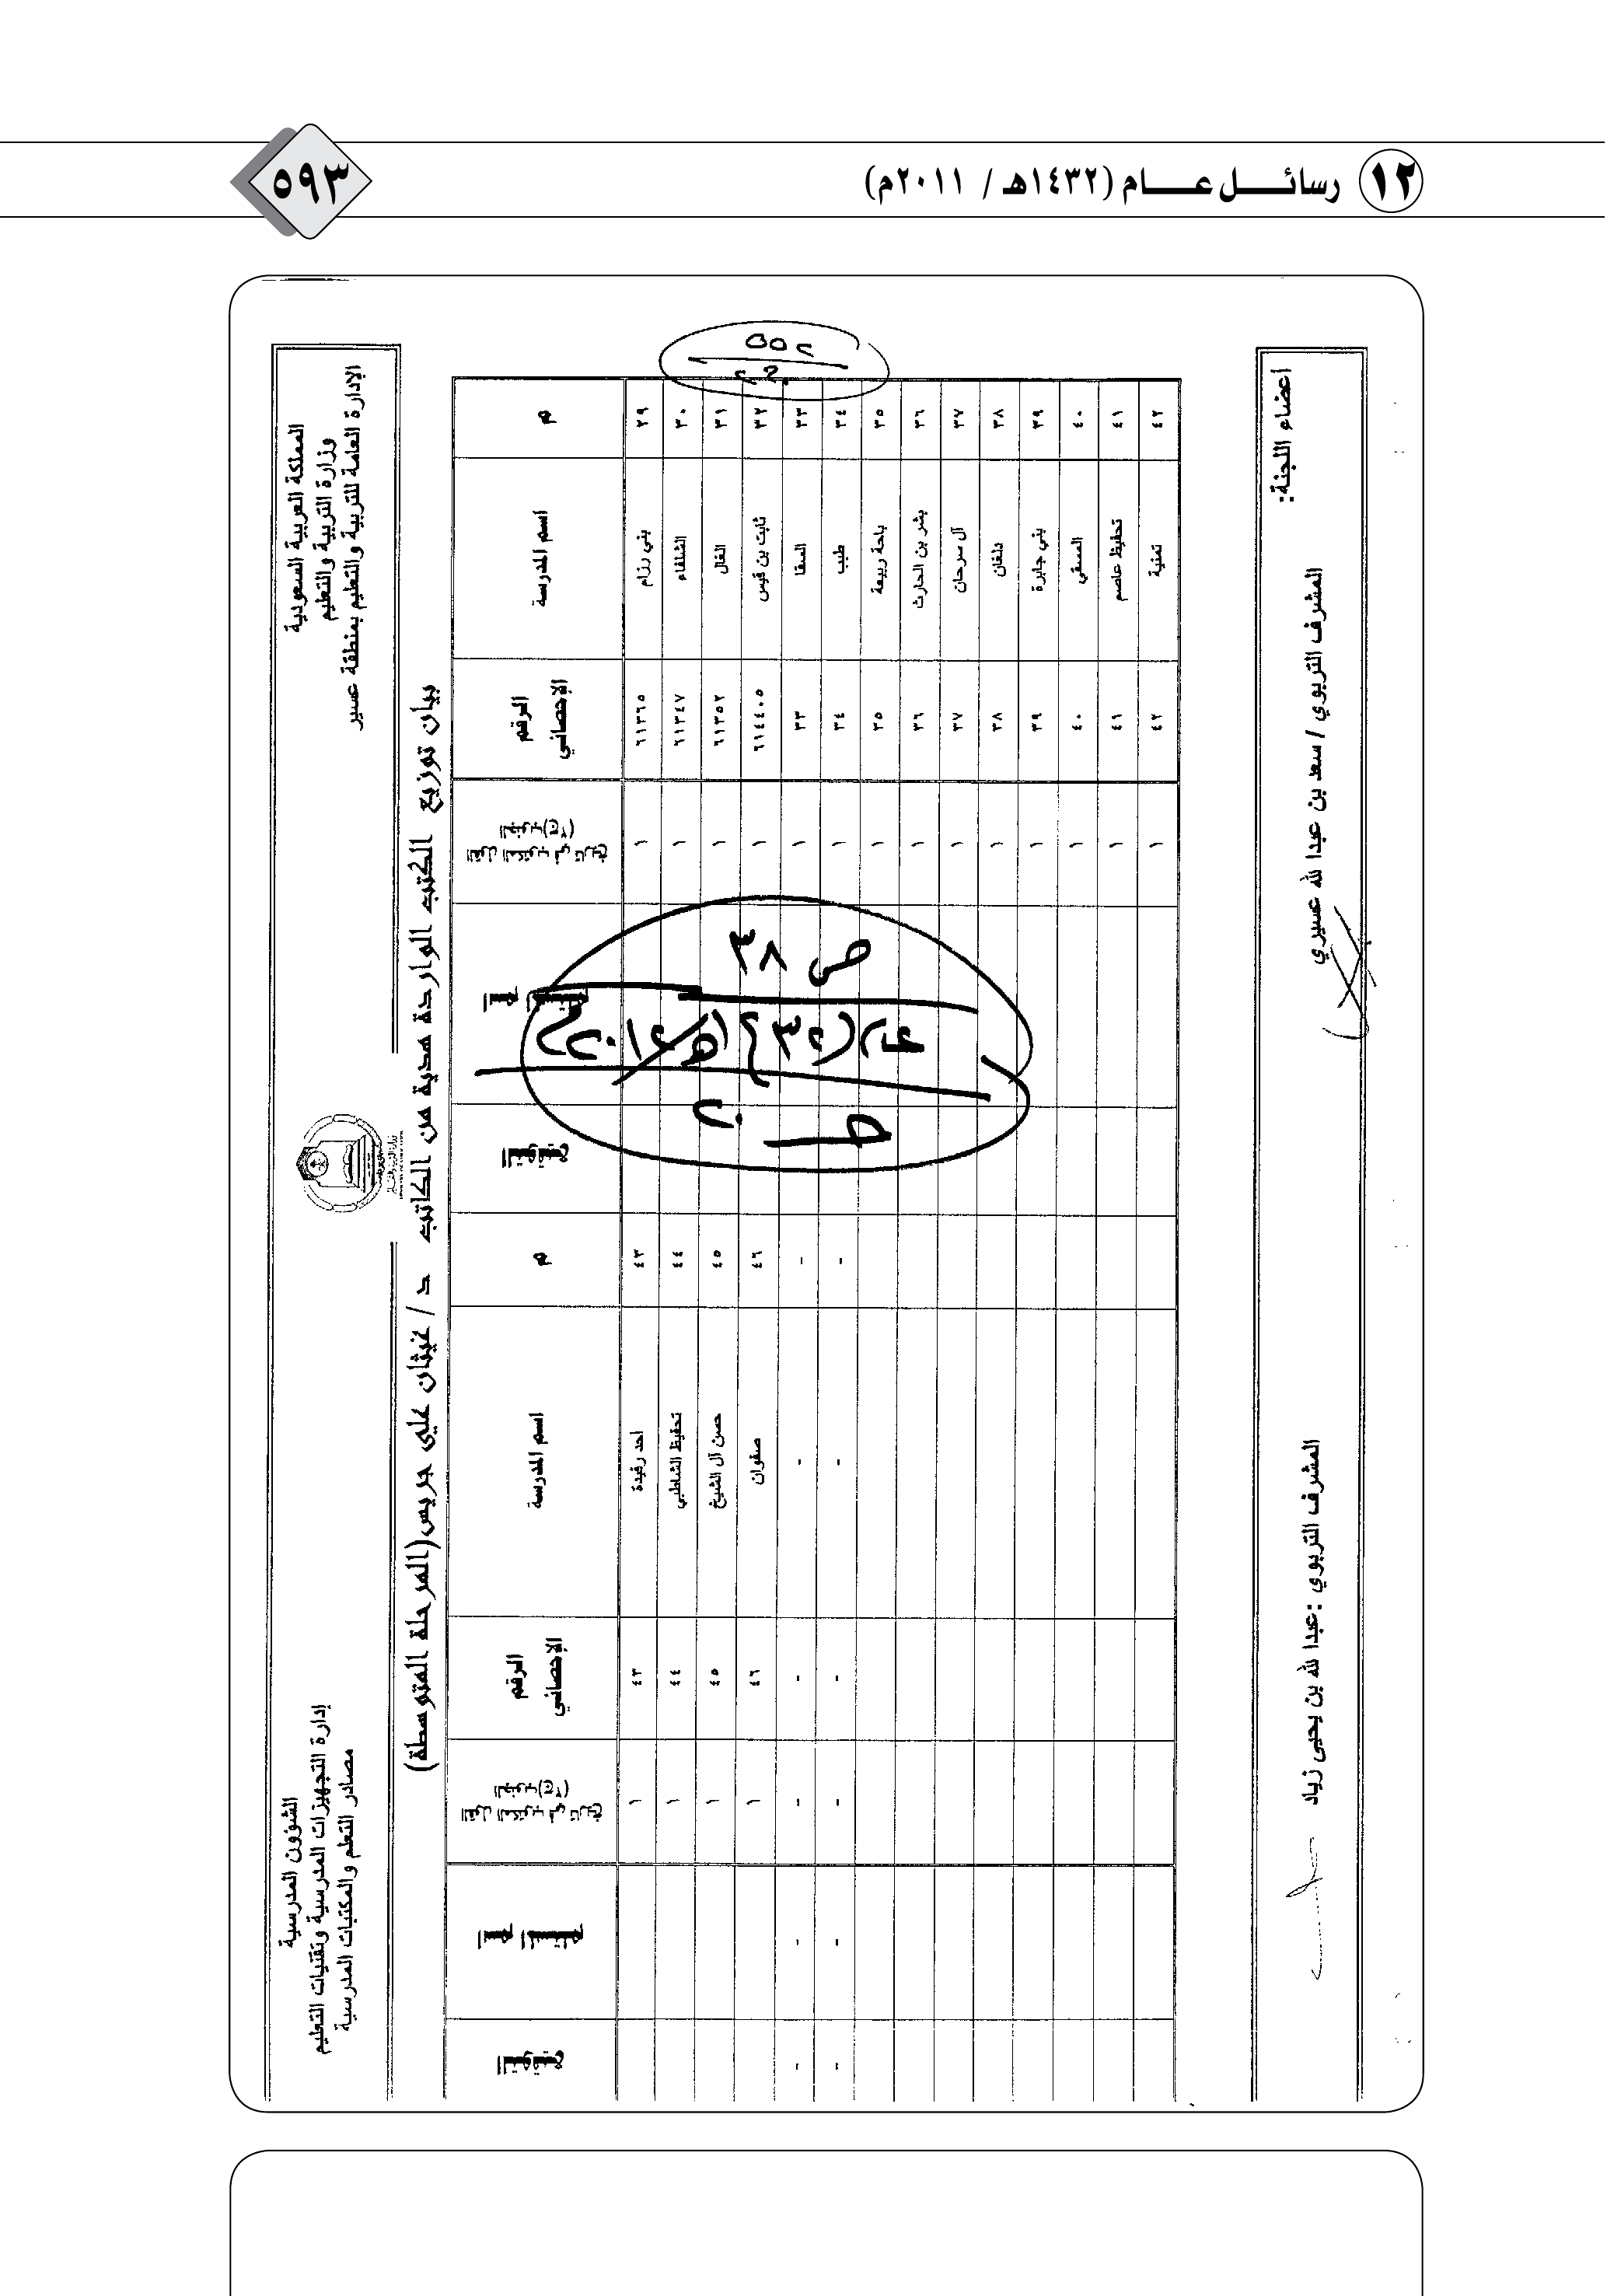 ١٢ رسائل عام (١٤٣٢هـ / ٢٠١١م)
٥٩٣
المملكة العربية السعودية
وزارة التربية والتعليم
الإدارة العامة للتربية والتعليم بمنطقة عسير
الشؤون المدرسية
إدارة التجهيزات المدرسية وتقنيات التعليم
مصادر التعلم والمكتبات المدرسية
بيان توزيع الكتب الواردة هدية من الكاتب د / غيثان علي جريس(المرحلة المتوسطة)
م اسم المدرسة الرقم الإحصائي القول المكتوب في تاريخ الجنوب(ج٢) التوقيع م اسم المدرسة الرقم الإحصائي القول المكتوب في تاريخ الجنوب(ج٢) التوقيع
٢٩ بني رزام ٦١٣٦٥ ١ ٤٣ احد رفيدة ٤٣ ١
٣٠ الشلفاء ٦١٣٤٧ ١ ٤٤ تحفيظ الشاطبي ٤٤ ١
٣١ الفال ٦١٣٥٢ ١ ٤٥ حسن آل الشيخ ٤٥ ١
٣٢ ثابت بن قيس ٦١٤٤٠٥ ١ ٤٦ صفوان ٤٦ ١
٣٣ السقا ٣٣ ١ - - - - - -
٣٤ طبب ٣٤ ١ - - - - - -
٣٥ باحة ربيعة ٣٥ ١
٣٦ بشر بن الحارث ٣٦ ١
٣٧ آل سرحان ٣٧ ١
٣٨ دلغان ٣٨ ١
٣٩ بني جابرة ٣٩ ١
٤٠ المسقي ٤٠ ١
٤١ تحفيظ عاصم ٤١ ١
٤٢ تمنية ٤٢ ١
ص ٣٨
اعضاء اللجنة:
المشرف التربوي / سعد بن عبدا لله عسيري
المشرف التربوي :عبدا لله بن يحيى زياد